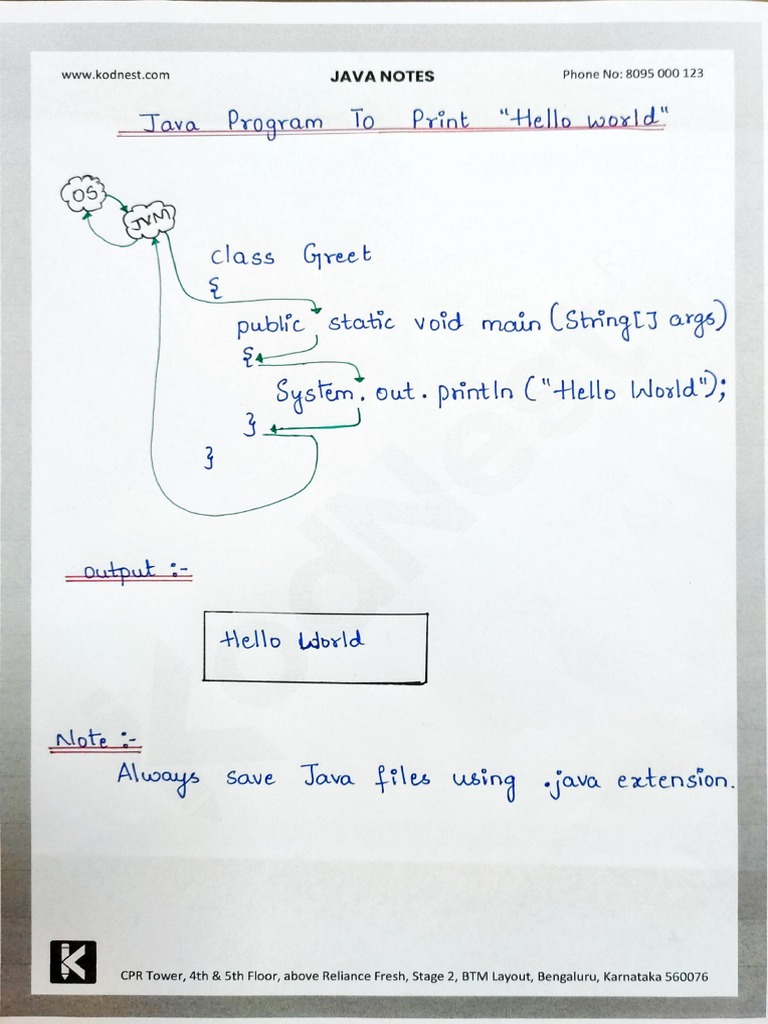 www.kodnest.com JAVA NOTES Phone No: 8095 000 123
Java Program To Print "Hello world"
OS
JVM
class Greet
{
public static void main (String[] args)
{
System.out.println ("Hello World");
}
}
output :-
Hello World
Note :-
Always save Java files using .java extension.
KodNest
K
CPR Tower, 4th & 5th Floor, above Reliance Fresh, Stage 2, BTM Layout, Bengaluru, Karnataka 560076